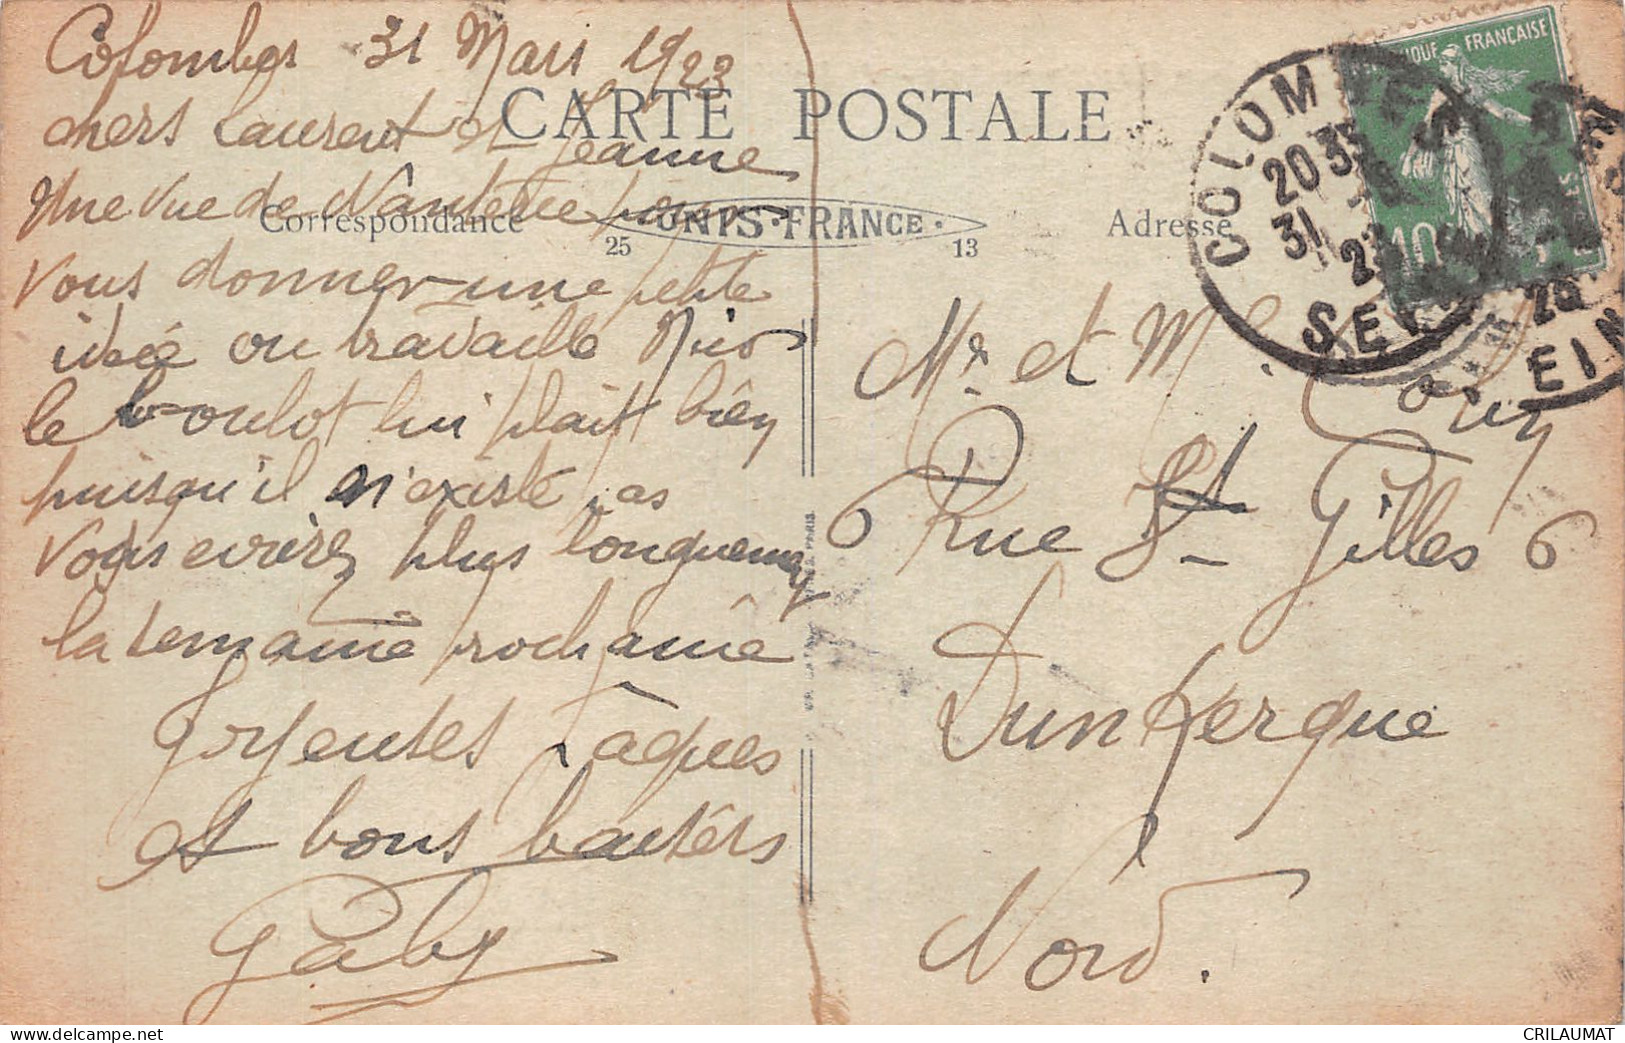 Colombes 31 Mars 1923
chers Laurent et Jeanne
Une vue de Nanterre pour
vous donner une petite
idée ou travaille
le boulot lui plait bien
puisqu'il n'existe pas
Vous ecrirez plus longuement
la semaine prochaine
Joyeuses Pâques
et bons baisers
Gaby
CARTE POSTALE
Correspondance
UNIS-FRANCE
25
13
Adresse
Mr et M
6 Rue St Gilles 6
Dunkerque
Nord.
RÉPUBLIQUE FRANÇAISE
10
COLOMBES
20 35
31
23
SEINE
delcampe.net
CRILAUMAT